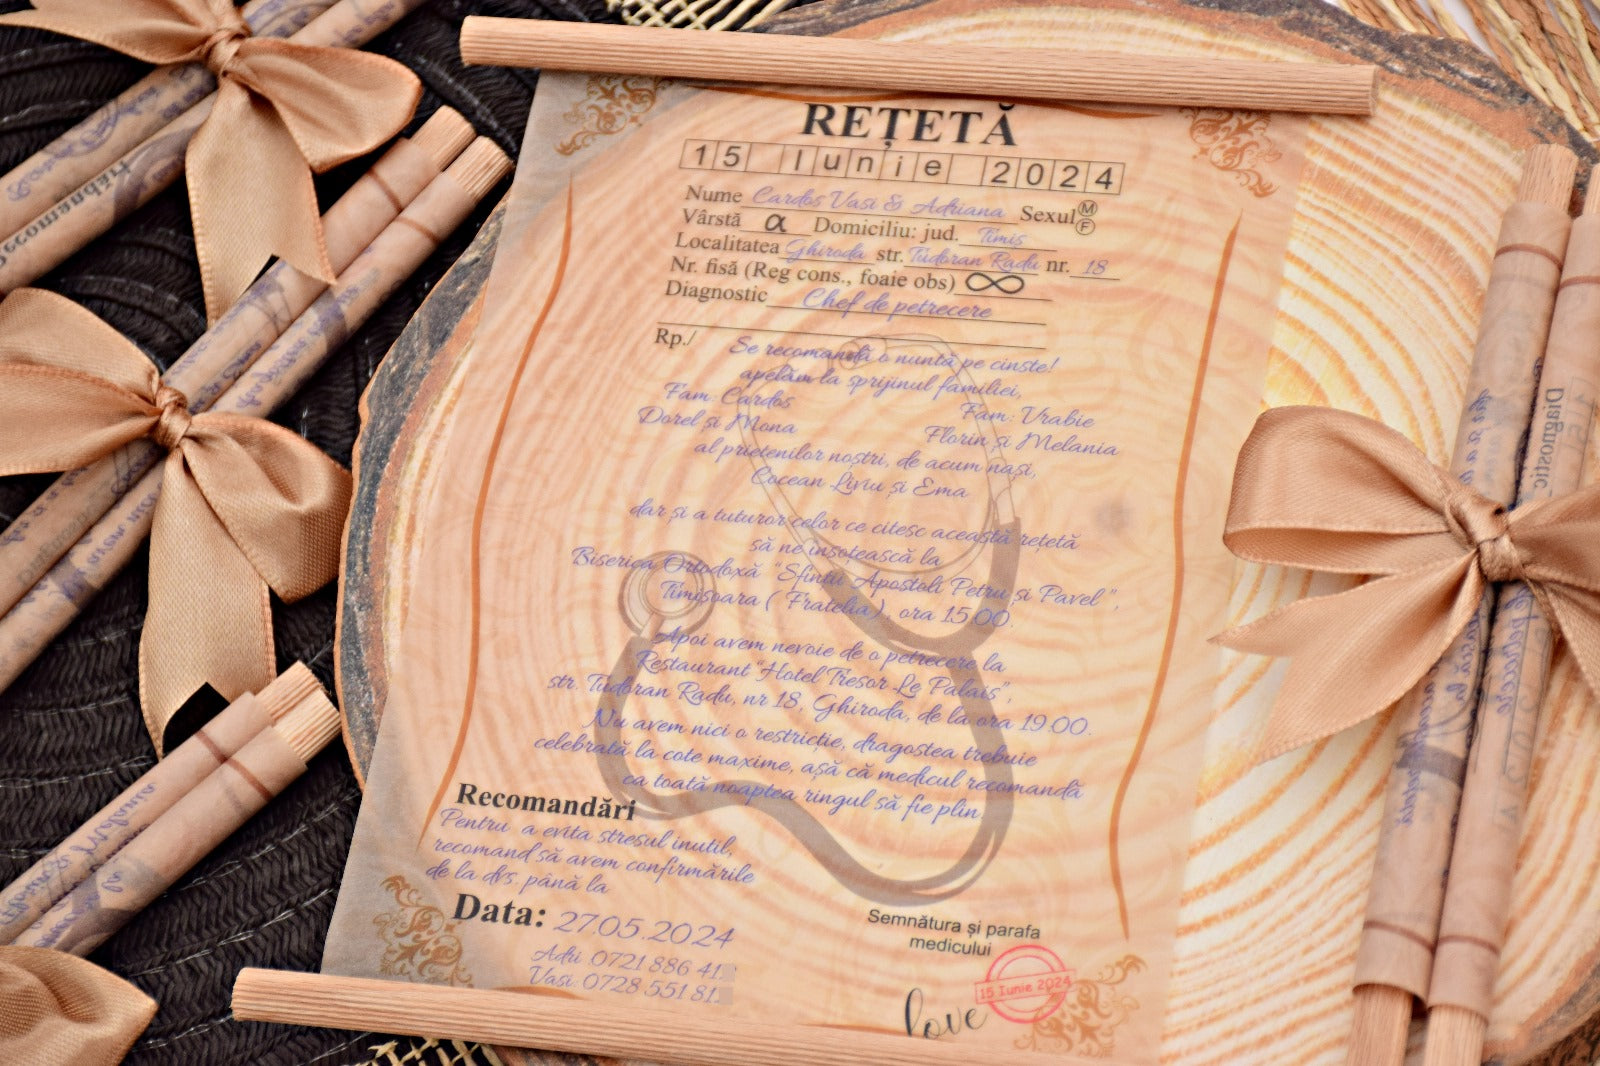 REȚETĂ
15 Iunie 2024
Nume Cardos Vasi & Adriana Sexul M F
Vârstă α Domiciliu: jud. Timiș
Localitatea Ghiroda str. Tudoran Radu nr. 18
Nr. fisă (Reg cons., foaie obs) ∞
Diagnostic Chef de petrecere
Rp./ Se recomandă o nuntă pe cinste!
apelăm la sprijinul familiei,
Fam: Cardos Fam: Vrabie
Dorel și Mona Florin și Melania
al prietenilor noștri, de acum nași,
Cocean Liviu și Ema
dar și a tuturor celor ce citesc această rețetă
să ne însoțească la
Biserica Ortodoxă "Sfinții Apostoli Petru și Pavel",
Timișoara ( Fratelia ), ora 15.00.
Apoi avem nevoie de o petrecere la
Restaurant "Hotel Tresor Le Palais",
str. Tudoran Radu, nr 18, Ghiroda, de la ora 19.00.
Nu avem nici o restricție, dragostea trebuie
celebrată la cote maxime, așă că medicul recomandă
ca toată noaptea ringul să fie plin.
Recomandări
Pentru a evita stresul inutil,
recomand să avem confirmările
de la dvs. până la
Data: 27.05.2024
Adri 0721 886 41
Vasi 0728 551 81
Semnătura și parafa
medicului
15 Iunie 2024
love
Diagnostic